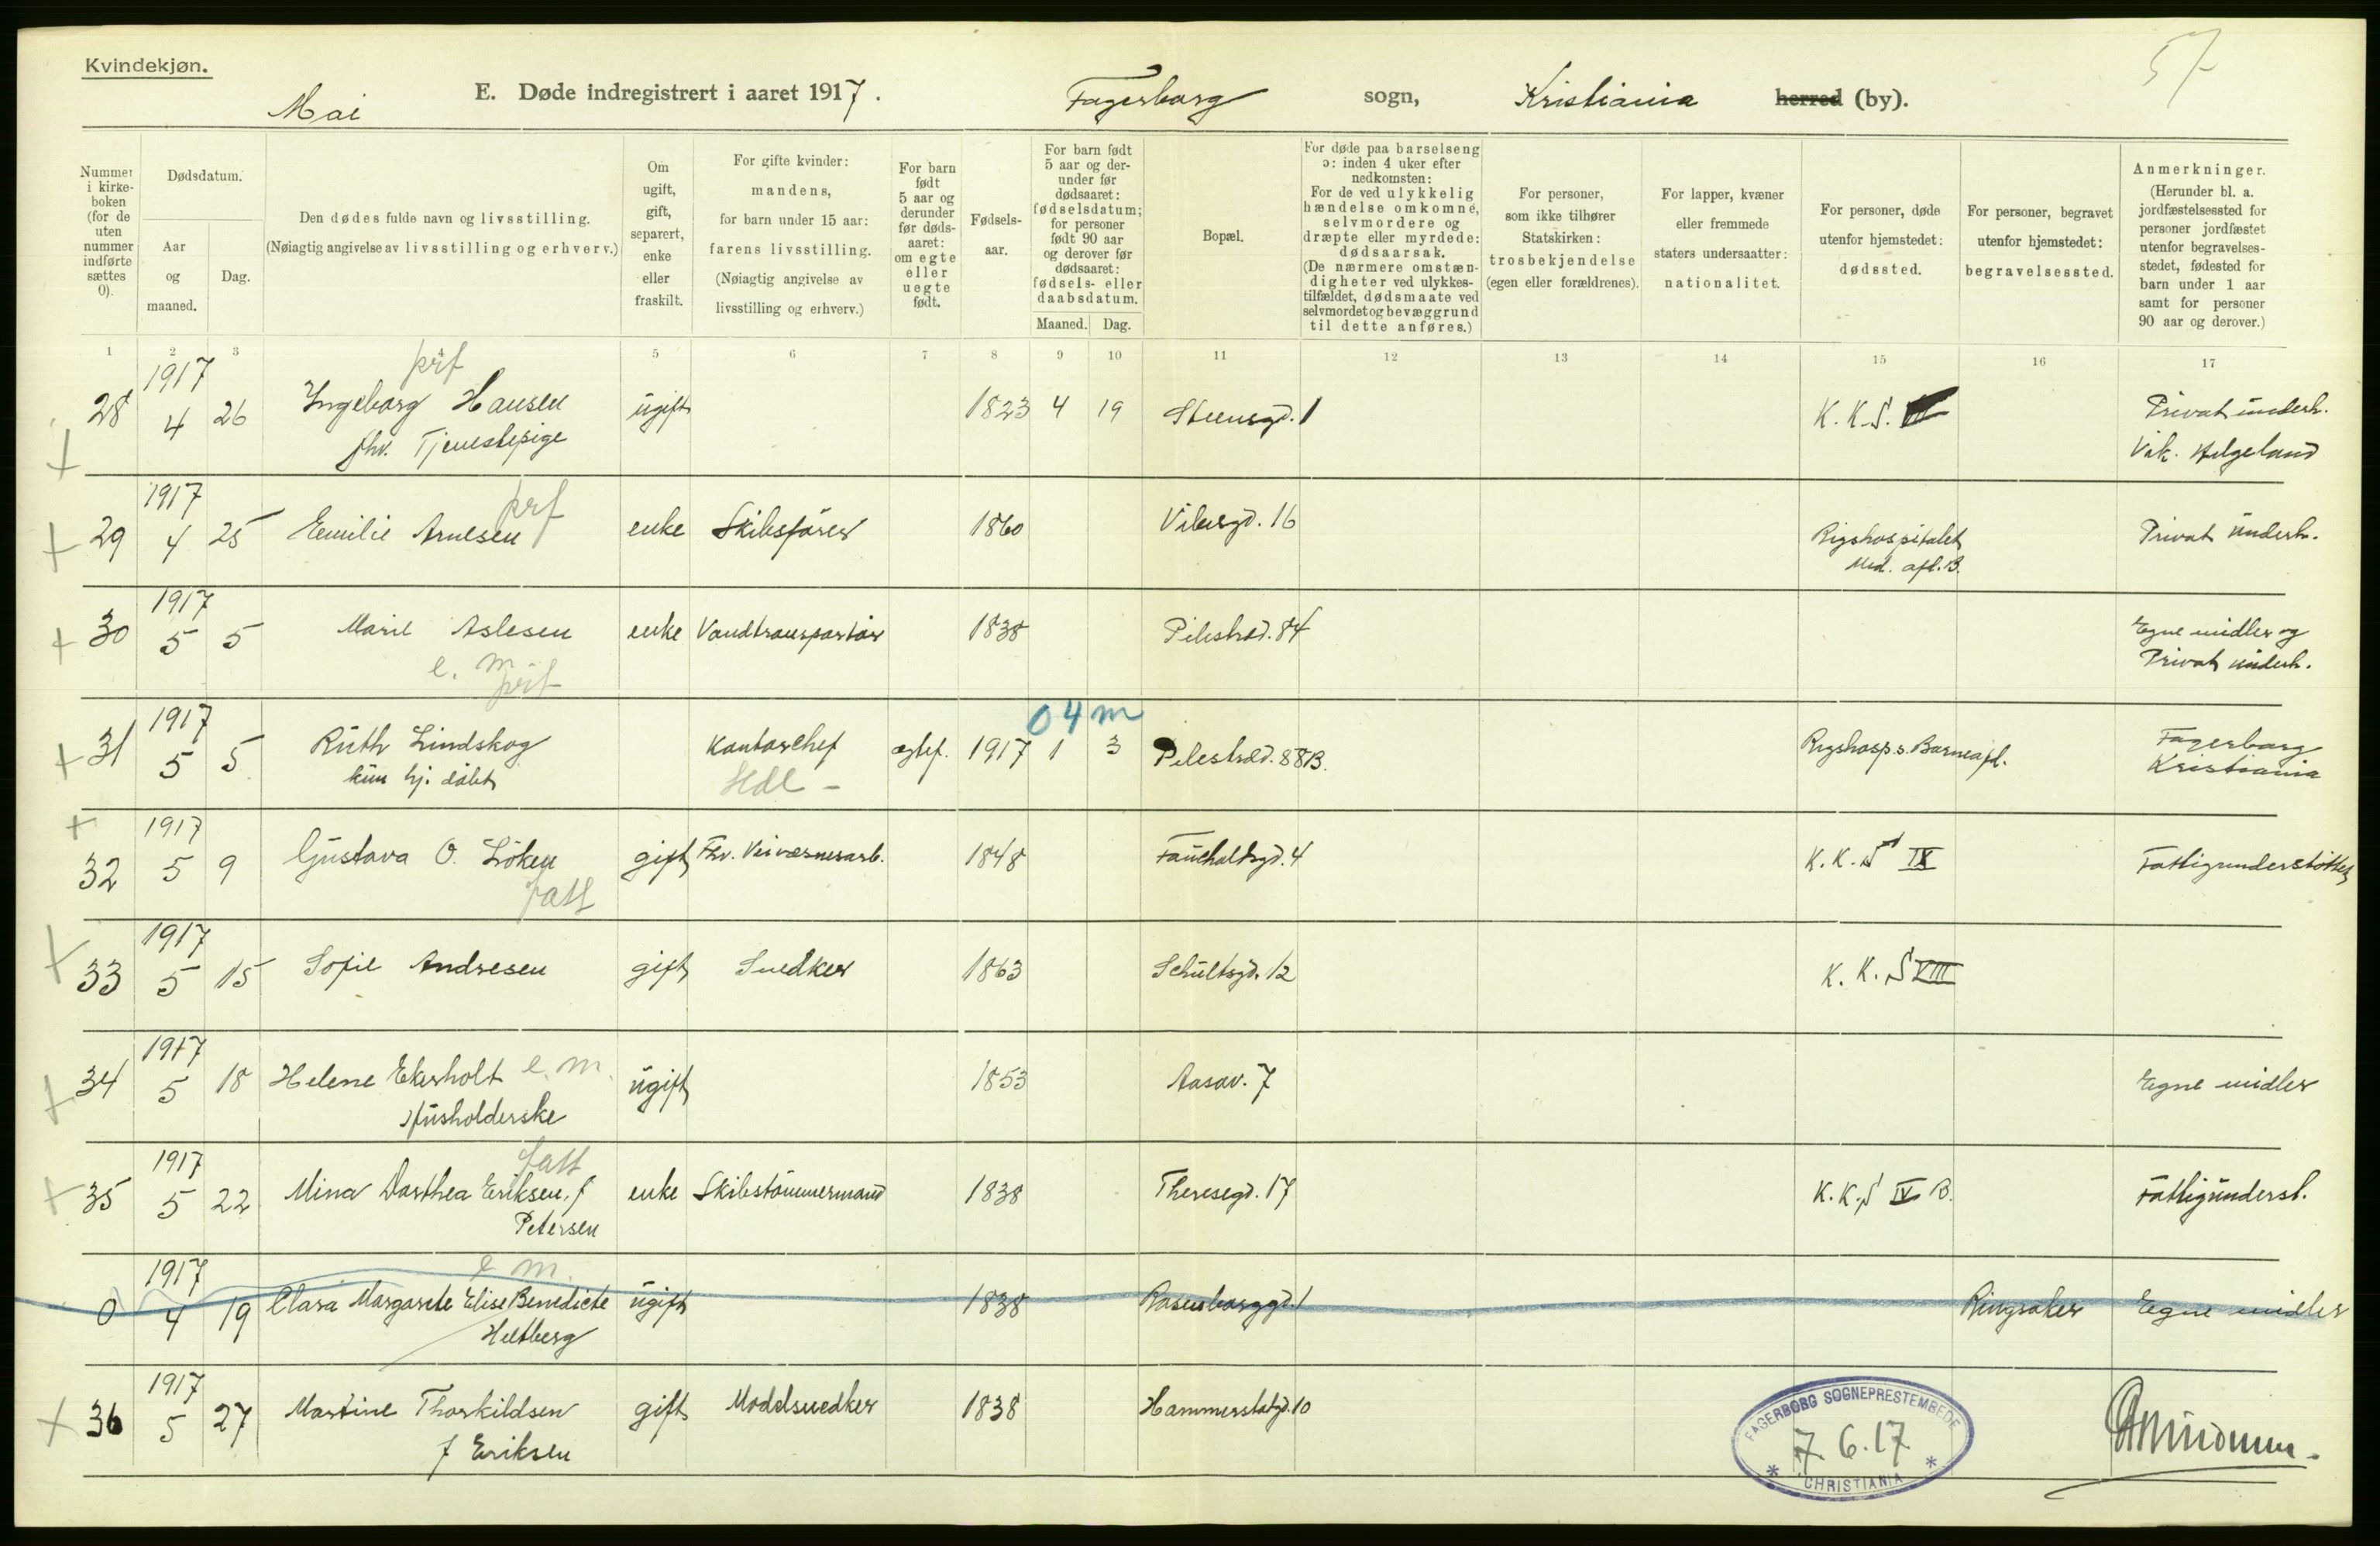 Kvindekjøn.
57
Mai
E. Døde indregistrert i aaret 1917.
Fagerborg sogn, Kristiania herred (by).
Nummer i kirke-boken (for de uten nummer indførte sættes 0).
Dødsdatum.
Aar og maaned.
Dag.
Den dødes fulde navn og livsstilling.
(Nøiagtig angivelse av livsstilling og erhverv.)
Om ugift, gift, separert, enke eller fraskilt.
For gifte kvinder: mandens, for barn under 15 aar: farens livsstilling. (Nøiagtig angivelse av livsstilling og erhverv.)
For barn født 5 aar og derunder før døds-aaret: om egte eller uegte født.
Fødsels-aar.
For barn født 5 aar og der-under før dødsaaret: fødselsdatum; for personer født 90 aar og derover før dødsaaret: fødsels- eller daabsdatum.
Maaned. Dag.
Bopæl.
For døde paa barselseng ɔ: inden 4 uker efter nedkomsten: For de ved ulykkelig hændelse omkomne, selvmordere og dræpte eller myrdede: dødsaarsak. (De nærmere omstæn-digheter ved ulykkes-tilfældet, dødsmaate ved selvmordet og bevæggrund til dette anføres.)
For personer, som ikke tilhører Statskirken: trosbekjendelse (egen eller forældrenes).
For lapper, kvæner eller fremmede staters undersaatter: nationalitet.
For personer, døde utenfor hjemstedet: dødssted.
For personer, begravet utenfor hjemstedet: begravelsessted.
Anmerkninger. (Herunder bl. a. jordfæstelsessted for personer jordfæstet utenfor begravelses-stedet, fødested for barn under 1 aar samt for personer 90 aar og derover.)
1 2 3 5 6 7 8 9 10 11 12 13 14 15 16 17
1917 prf
28 4 26 Ingeborg Hansen ugift 1823 4 19 Steensgd. 1 K.K.S. Privat underh.
fhv. Tjenestepige Vik. Helgeland
1917 prf
29 4 25 Emilie Arnesen enke Skibsfører 1860 Vibesgd. 16 Rigshospitalet Privat underh.
Med. afd. B.
1917
30 5 5 Marie Aslesen enke Vandtransportør 1838 Pilestræd. 84 Egne midler og
e. m prif Privat underh.
1917 0 4 m
31 5 5 Ruth Lindskog Kontorchef egtef. 1917 1 3 Pilestræd. 88B. Rigshosp.s. Barneafd. Fagerborg
kun hj. døbt Hdl - Kristiania
1917
32 5 9 Gustava O. Løken gift Fhv. Veivæsnesarb. 1848 Fauchaldsgd. 4 K.K.S IX Fattigunderstøttet
fatt
1917
33 5 15 Sofie Andresen gift Snedker 1863 Schultsgd. 12 K.K.S VIII
1917
34 5 18 Helene Ekerholt e. m. ugift 1853 Aasav. 7 Egne midler
Husholderske
1917 fatt
35 5 22 Mina Dorthea Eriksen, f enke Skibstømmermand 1838 Theresegd. 17 K.K.S IV B. Fattigunderst.
Petersen
1917 e m.
0 4 19 Clara Margarete Elise Benedicte ugift 1838 Rosenborggd. 1 Ringsaker Egne midler
Heltberg
1917
36 5 27 Martine Thorkildsen gift Modelsnedker 1838 Hammerstadgd. 10
f Eriksen
FAGERBORG SOGNEPRESTEMBEDE
7 6.17
* CHRISTIANIA *